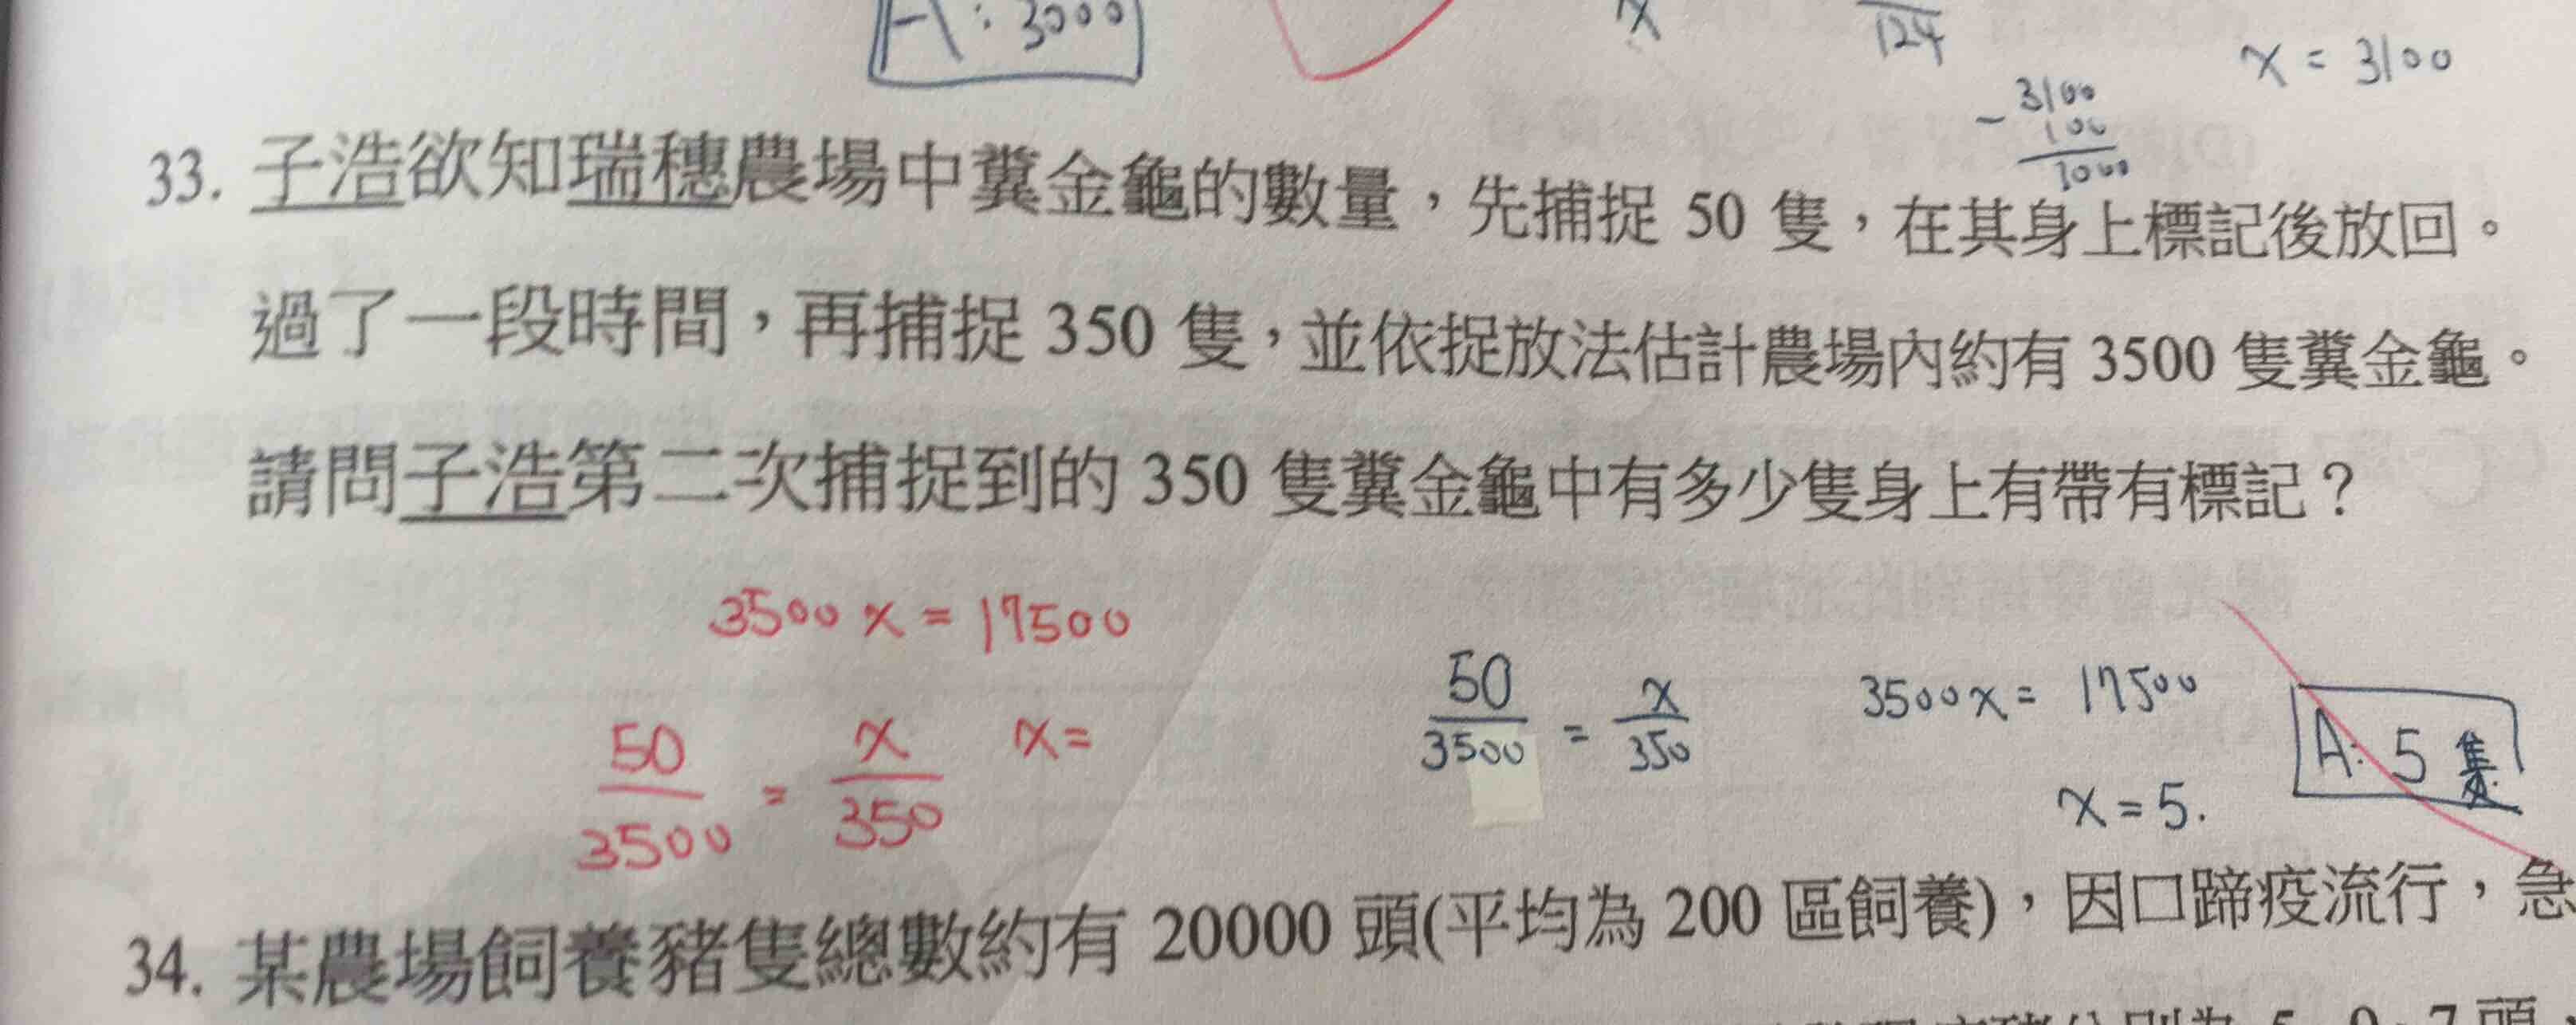 A: 3000
x
124
x = 3100
- 3100
100
3000
33. 子浩欲知瑞穗農場中糞金龜的數量，先捕捉 50 隻，在其身上標記後放回。
過了一段時間，再捕捉 350 隻，並依捉放法估計農場內約有 3500 隻糞金龜。
請問子浩第二次捕捉到的 350 隻糞金龜中有多少隻身上有帶有標記？
3500 x = 17500
50/3500 = x/350 x=
50/3500 = x/350
3500x = 17500
x = 5.
A: 5 隻
34. 某農場飼養豬隻總數約有 20000 頭(平均為 200 區飼養)，因口蹄疫流行，急